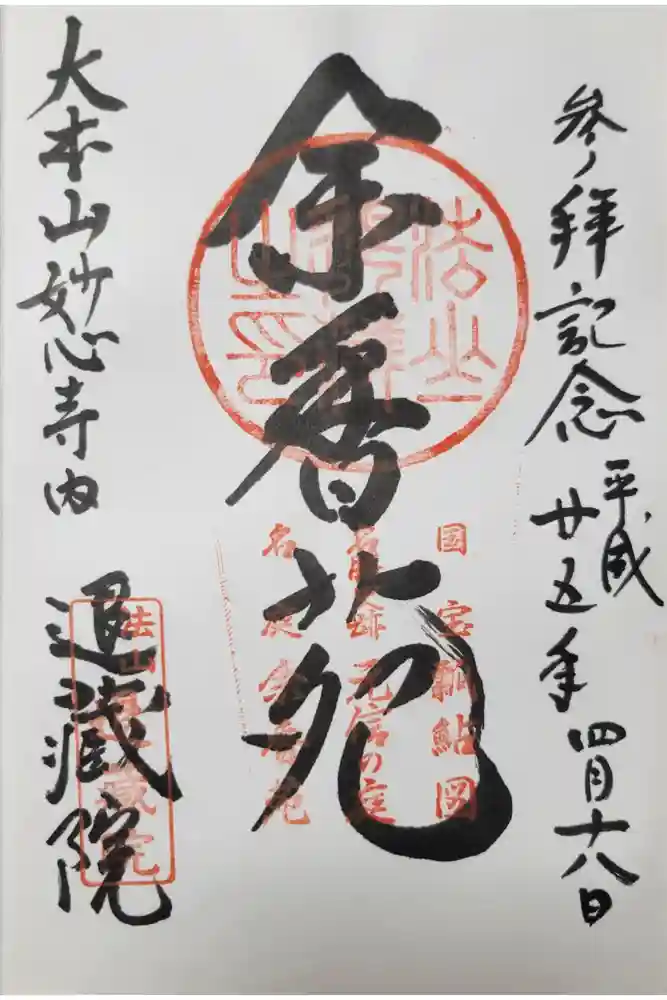 参拝記念
平成
廿五年
四月十八日
余香苑
国宝瓢鮎図
名勝史蹟元信の庭
名庭余香苑
大本山妙心寺内
退蔵院
法山退蔵院